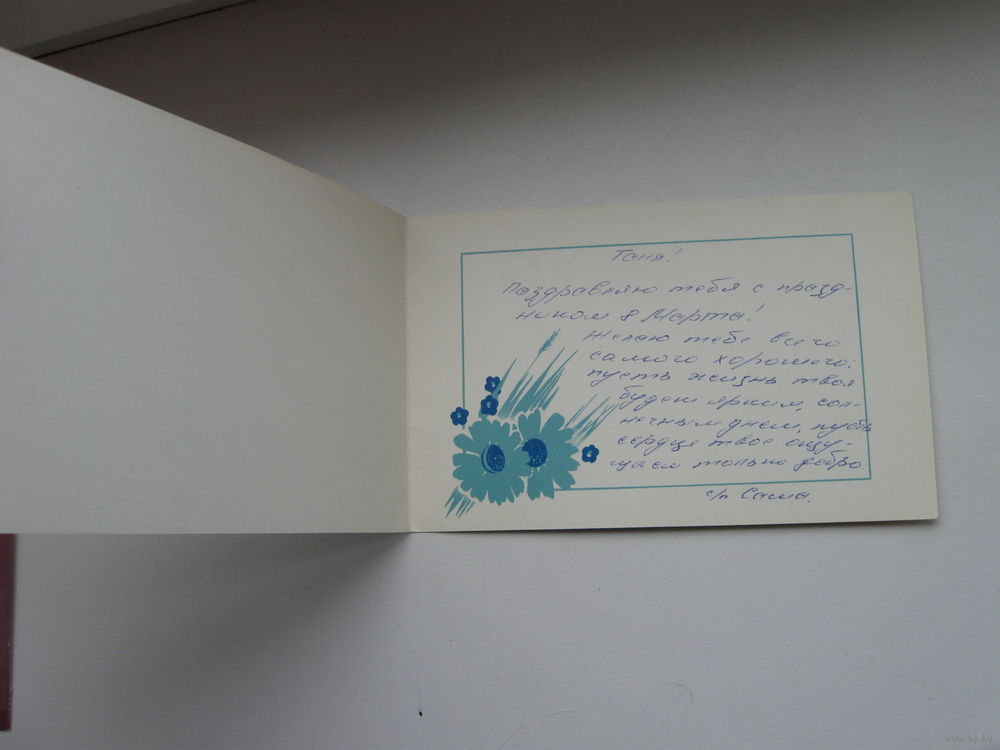 Таня!
Поздравляю тебя с празд-
ником 8 Марта!
Желаю тебе всего
самого хорошего:
пусть жизнь твоя
будет ярким, сол-
нечным днем, пусть
сердце твое ощу-
щает только добро.
с/п Саша.
www.ay.by